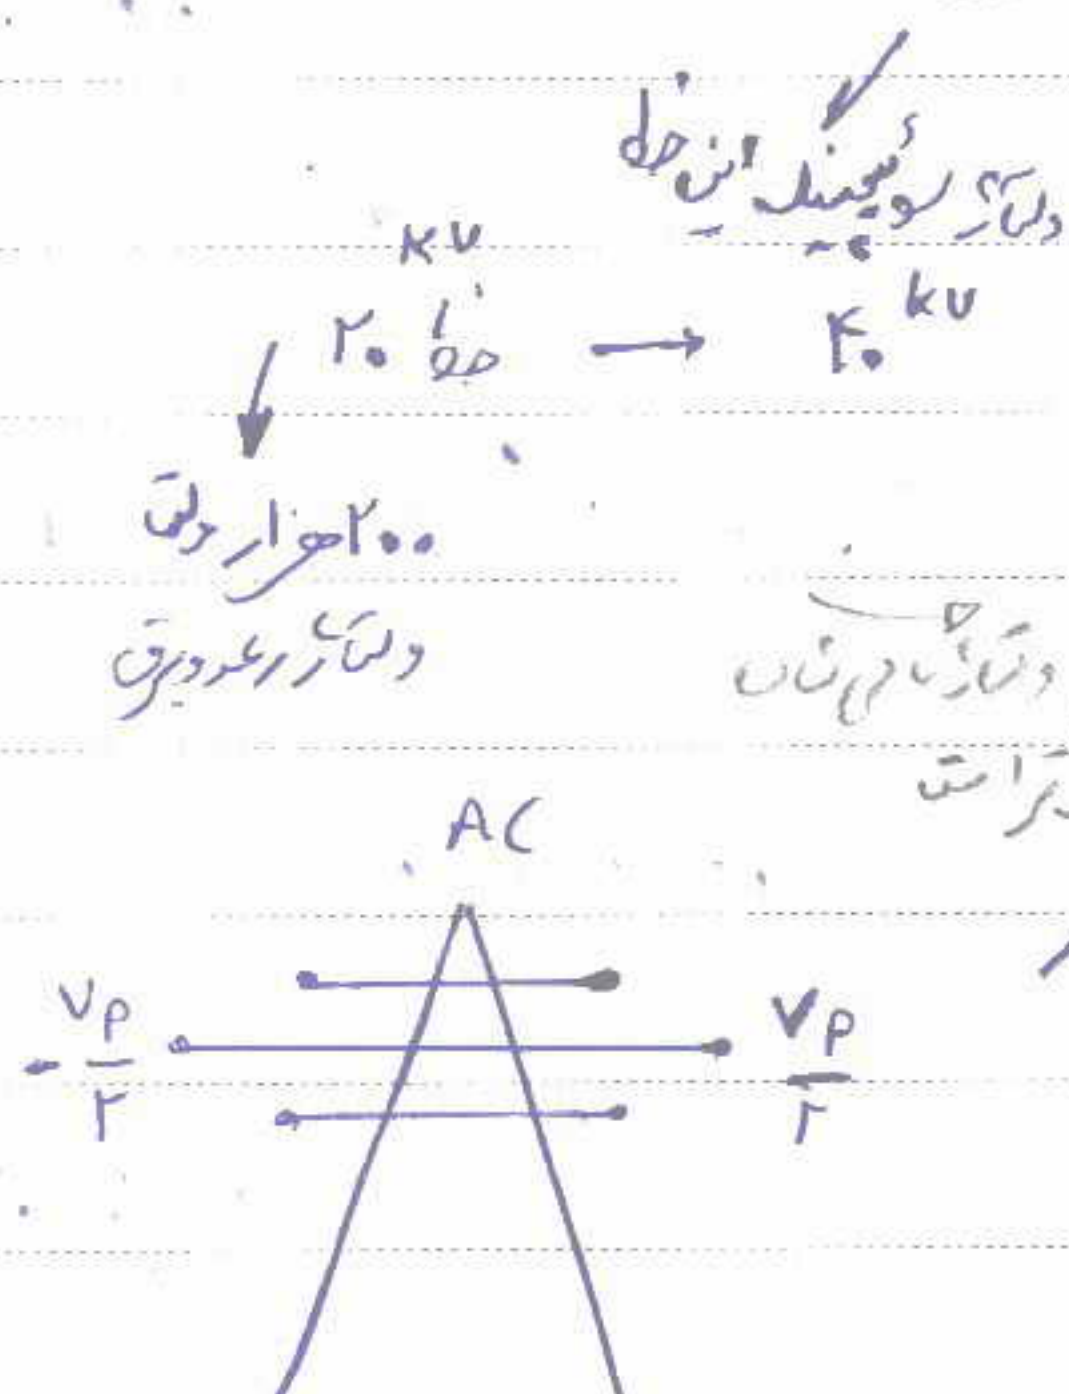 ولتاژ سوئیچینگ این خط
kv
خط ۲۰ → ۴۰ kv
۲۰۰ هزار ولت
ولتاژ رعد و برق
ولتاژ نامی شان
است
AC
- Vp/۲
Vp/۲